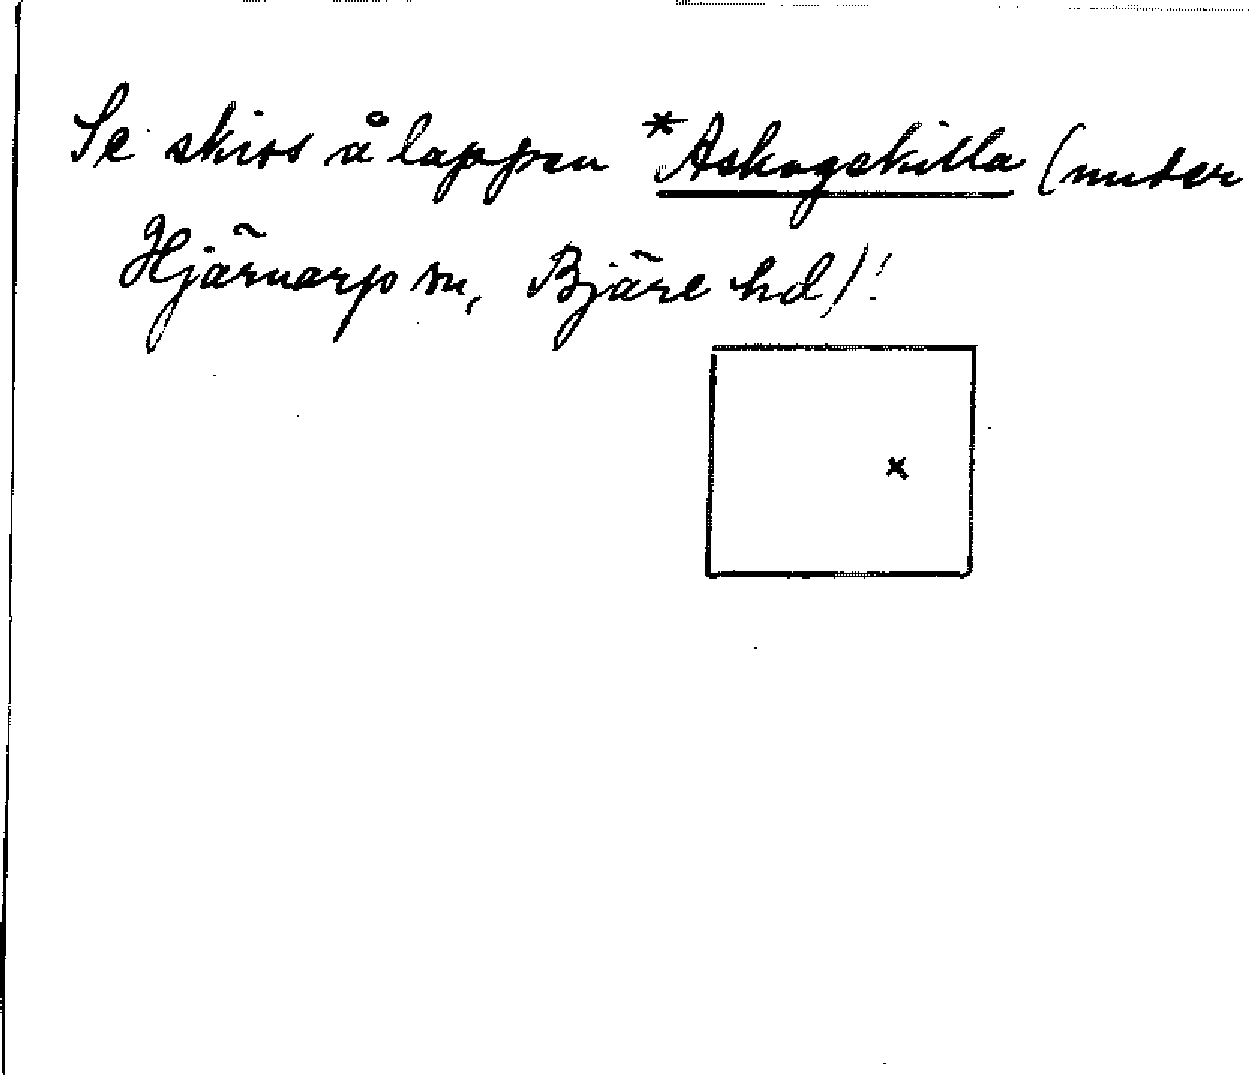 Se skiss å lappen *Askogskilla (under
Hjärnarp sn, Bjäre hd)!
x